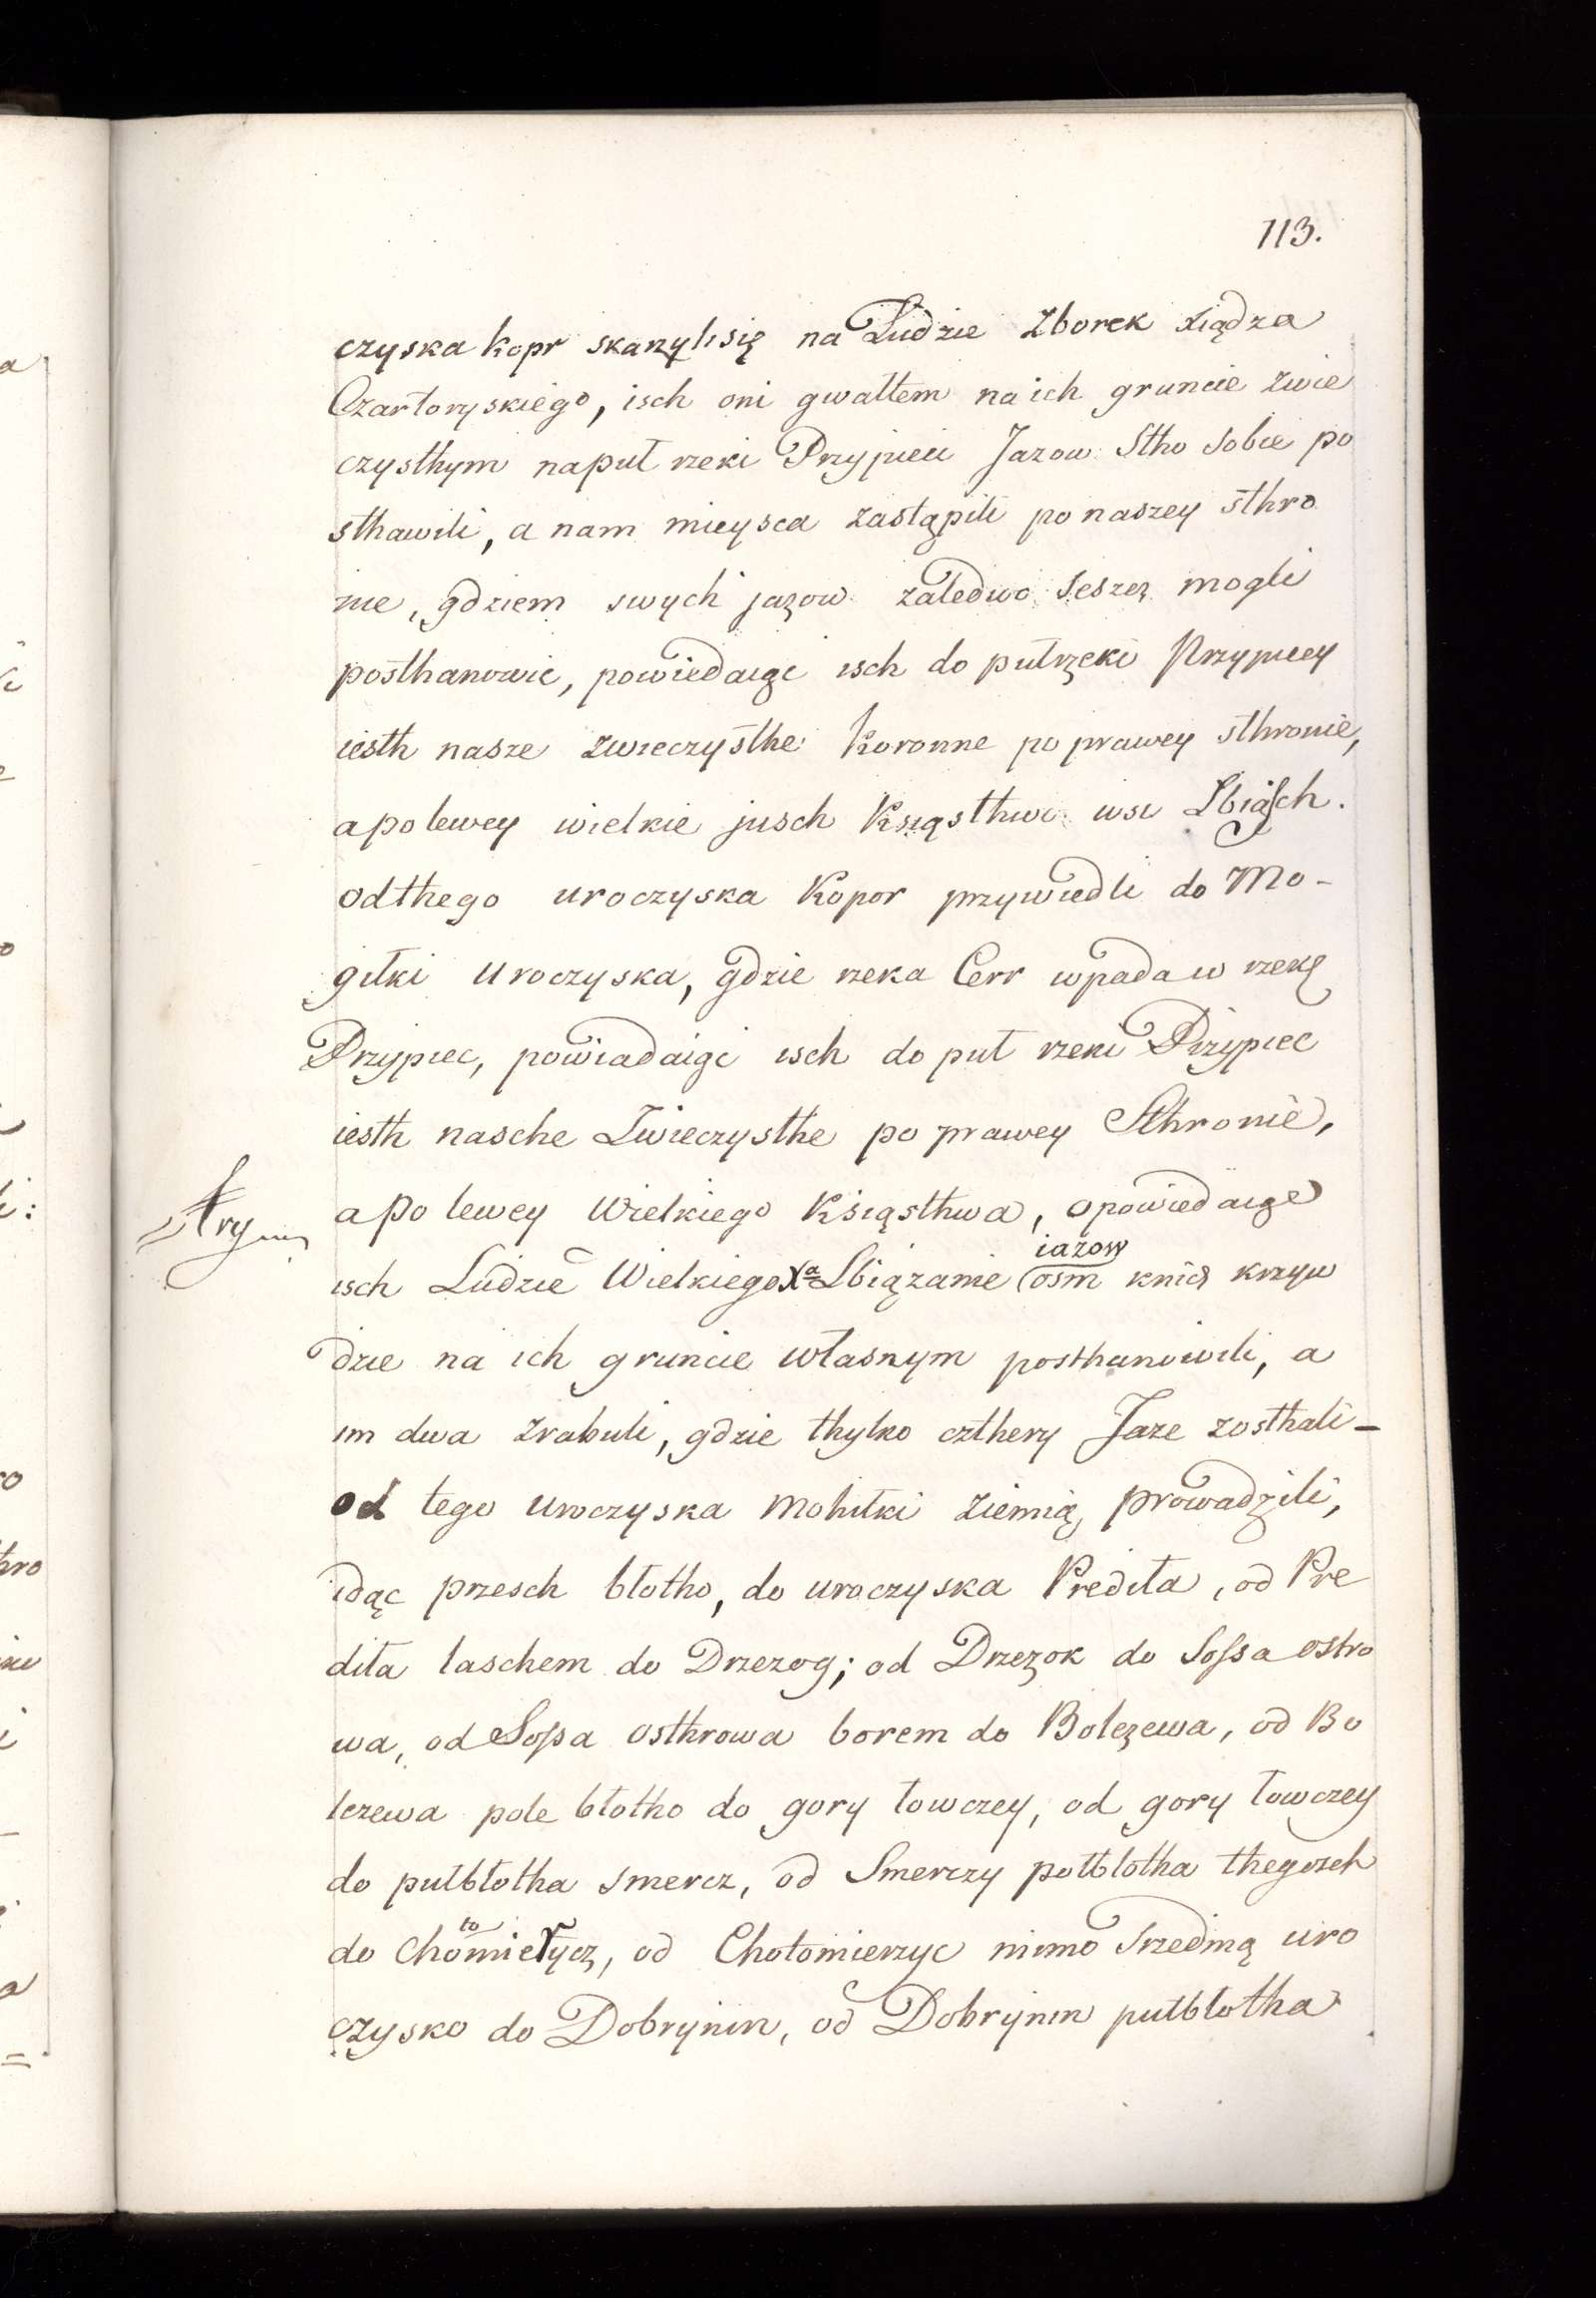 113.
czyska kopr skarzyli się na Ludzie Zborek xiądza
Czartoryskiego, isch oni gwałtem na ich gruncie zwie
czysthym naput rzeki Przypieci Jazow Stho sobie po
sthawili, a nam mieysca zastąpili po naszey sthro
nie, gdziem swych jazow zaledwo seszcz mogli
posthanowic, powiedaiąc isch do putrzeki Przypiecy
iesth nasze zwieczysthe Koronne po prawey sthronie,
a po lewey wielkie jusch Ksiąsthwo wsi Lbiąsch.
od thego uroczyska Kopor przywiedli do Mo-
giłki uroczyska, gdzie rzeka Cerr wpada w rzekę
Przypiec, powiadaiąc isch do put rzeki Przypiec
iesth nasche Zwieczysthe po prawey Sthronie,
a po lewey Wielkiego Ksiąsthwa, opowiedaiąc
isch Ludzie Wielkiego Xa Lbiązanie osm iazow knich krzyw
dzie na ich gruncie własnym posthanowili, a
im dwa zrabuli, gdzie thylko czthery Jaze zosthali-
od tego uroczyska mohiłki ziemią prowadzili,
idąc przesch błotho, do uroczyska Prediła, od Pre
diła laschem do Drzezog; od Drzezok do Sossa ostro
wa, od Sossa osthrowa borem do Bolczewa, od Bo
lczewa pole błotho do gory łowczey, od gory łowczey
do putbłotha smercz, od Smerczy połblotha thegosch
do Chotomierycz, od Chołomierzyc mimo Srzednią uro
czysko do Dobrynin, od Dobrynin putbłotha